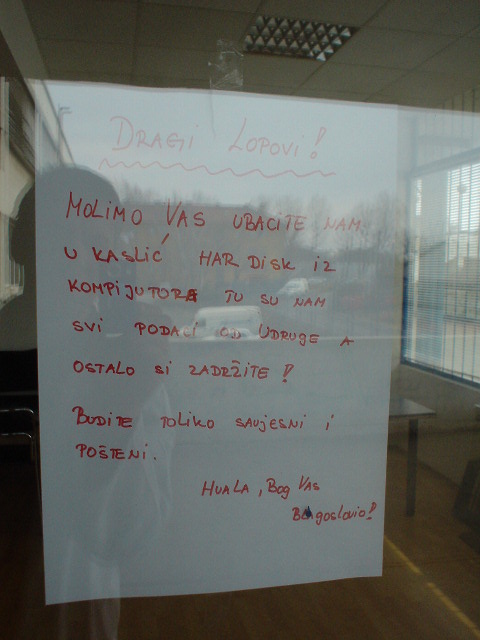 DRAGI LOPOVI!
MOLIMO VAS UBACITE NAM
U KASLIĆ HAR DISK IZ
KOMPIJUTORA TU SU NAM
SVI PODACI OD UDRUGE A
OSTALO SI ZADRŽITE!
BUDITE TOLIKO SAVJESNI I
POŠTENI.
HVALA, BOG VAS
BLAGOSLOVIO!